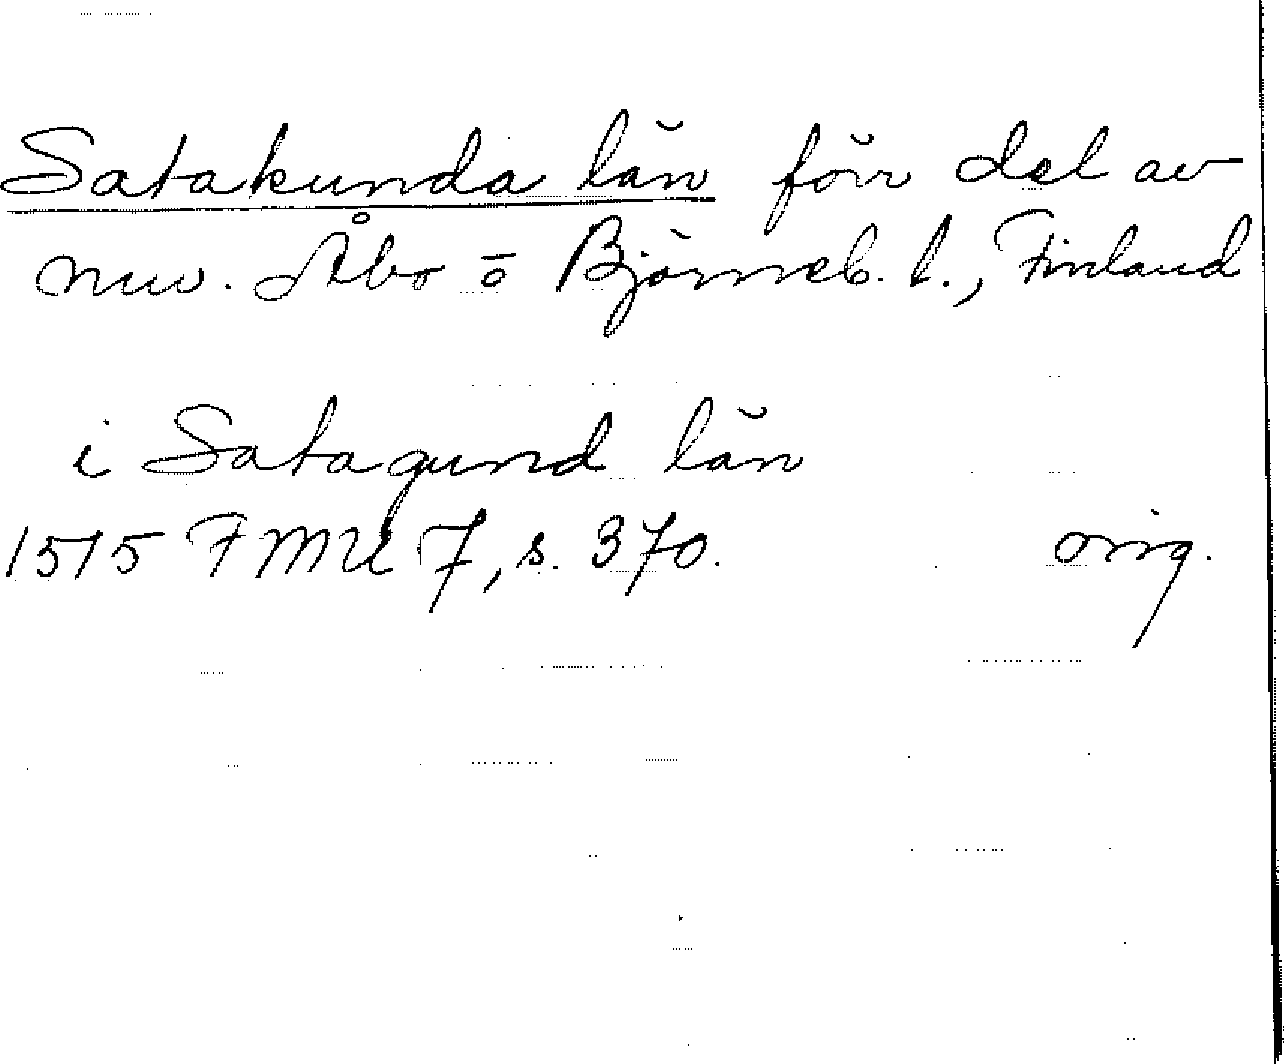 Satakunda län förr del av
nuv. Åbo o Björneb. l., Finland
i Satagund län
1515 FMU 7, s. 370. orig.